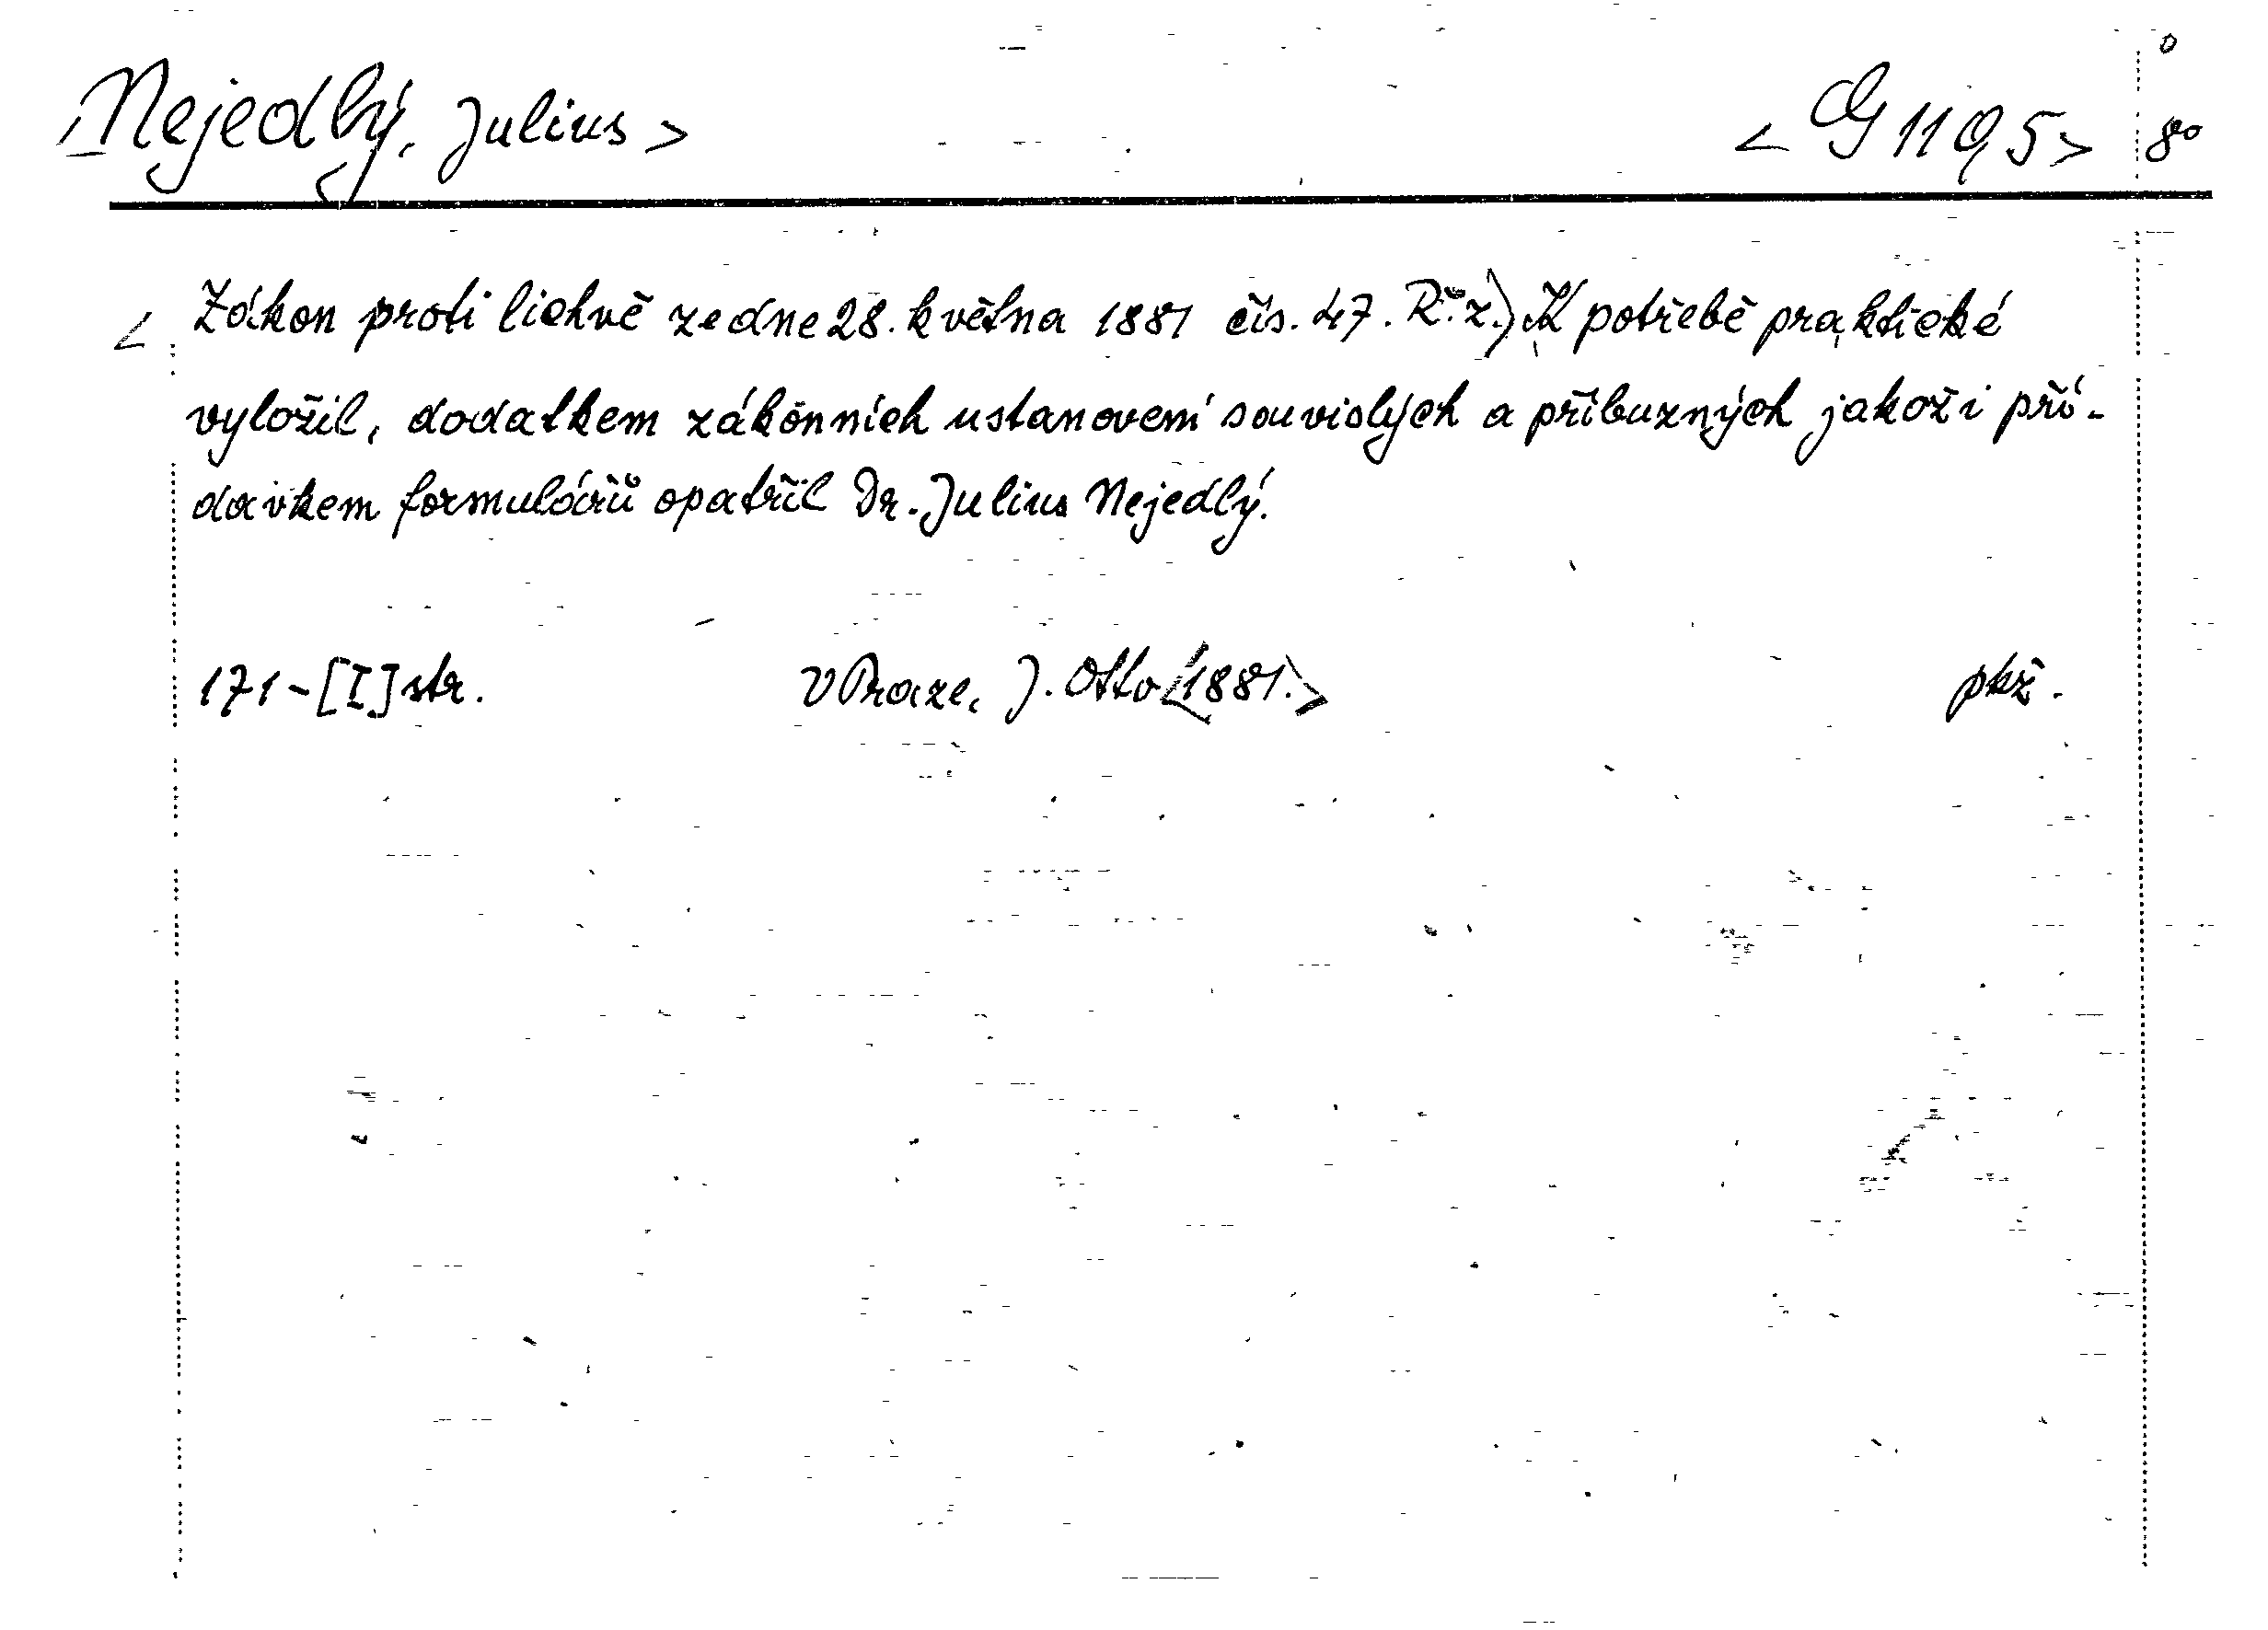 Nejedlý, Julius > < G 1195 > 8°
< Zákon proti lichvě ze dne 28. května 1881 čís. 47. Ř. z.) K potřebě praktické
vyložil, dodatkem zákonních ustanovení souvislých a příbuzných jakož i pří-
davkem formulářů opatřil Dr. Julius Nejedlý.
171-[I] str. V Praze, J. Otto <1881.> pkž.